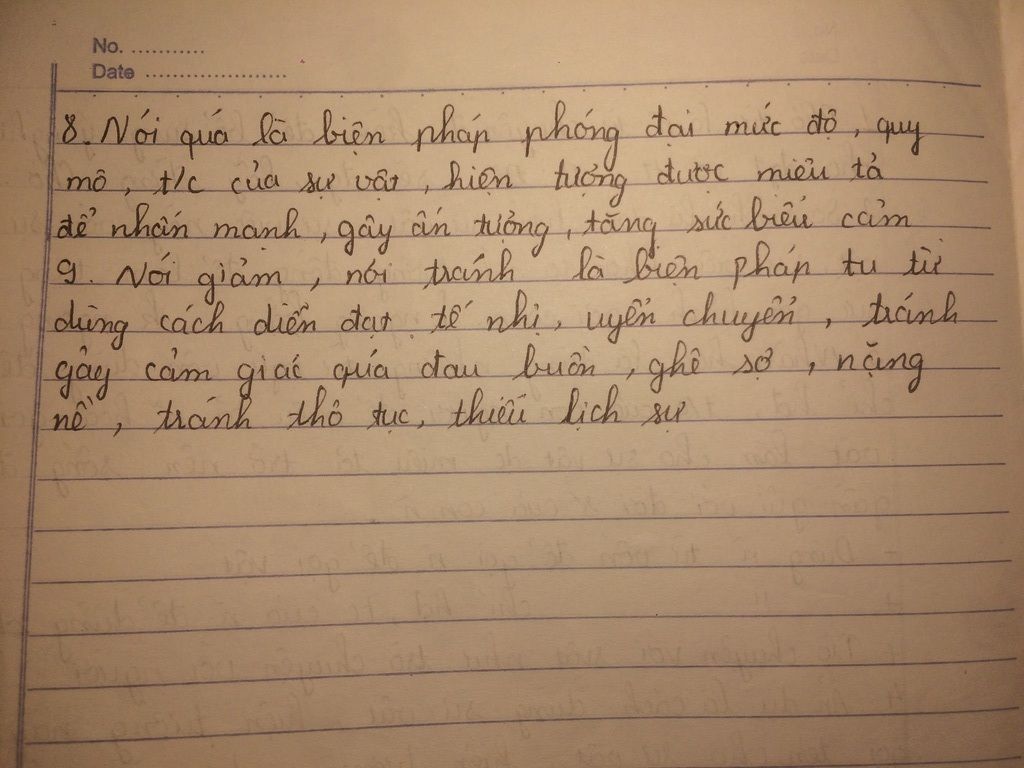 No. ...........
Date .....................
8. Nói quá là biện pháp phóng đại mức độ, quy
mô, t/c của sự vật, hiện tượng được miêu tả
để nhấn mạnh, gây ấn tượng, tăng sức biểu cảm
9. Nói giảm, nói tránh là biện pháp tu từ
dùng cách diễn đạt tế nhị, uyển chuyển, tránh
gây cảm giác quá đau buồn, ghê sợ, nặng
nề, tránh thô tục, thiếu lịch sự